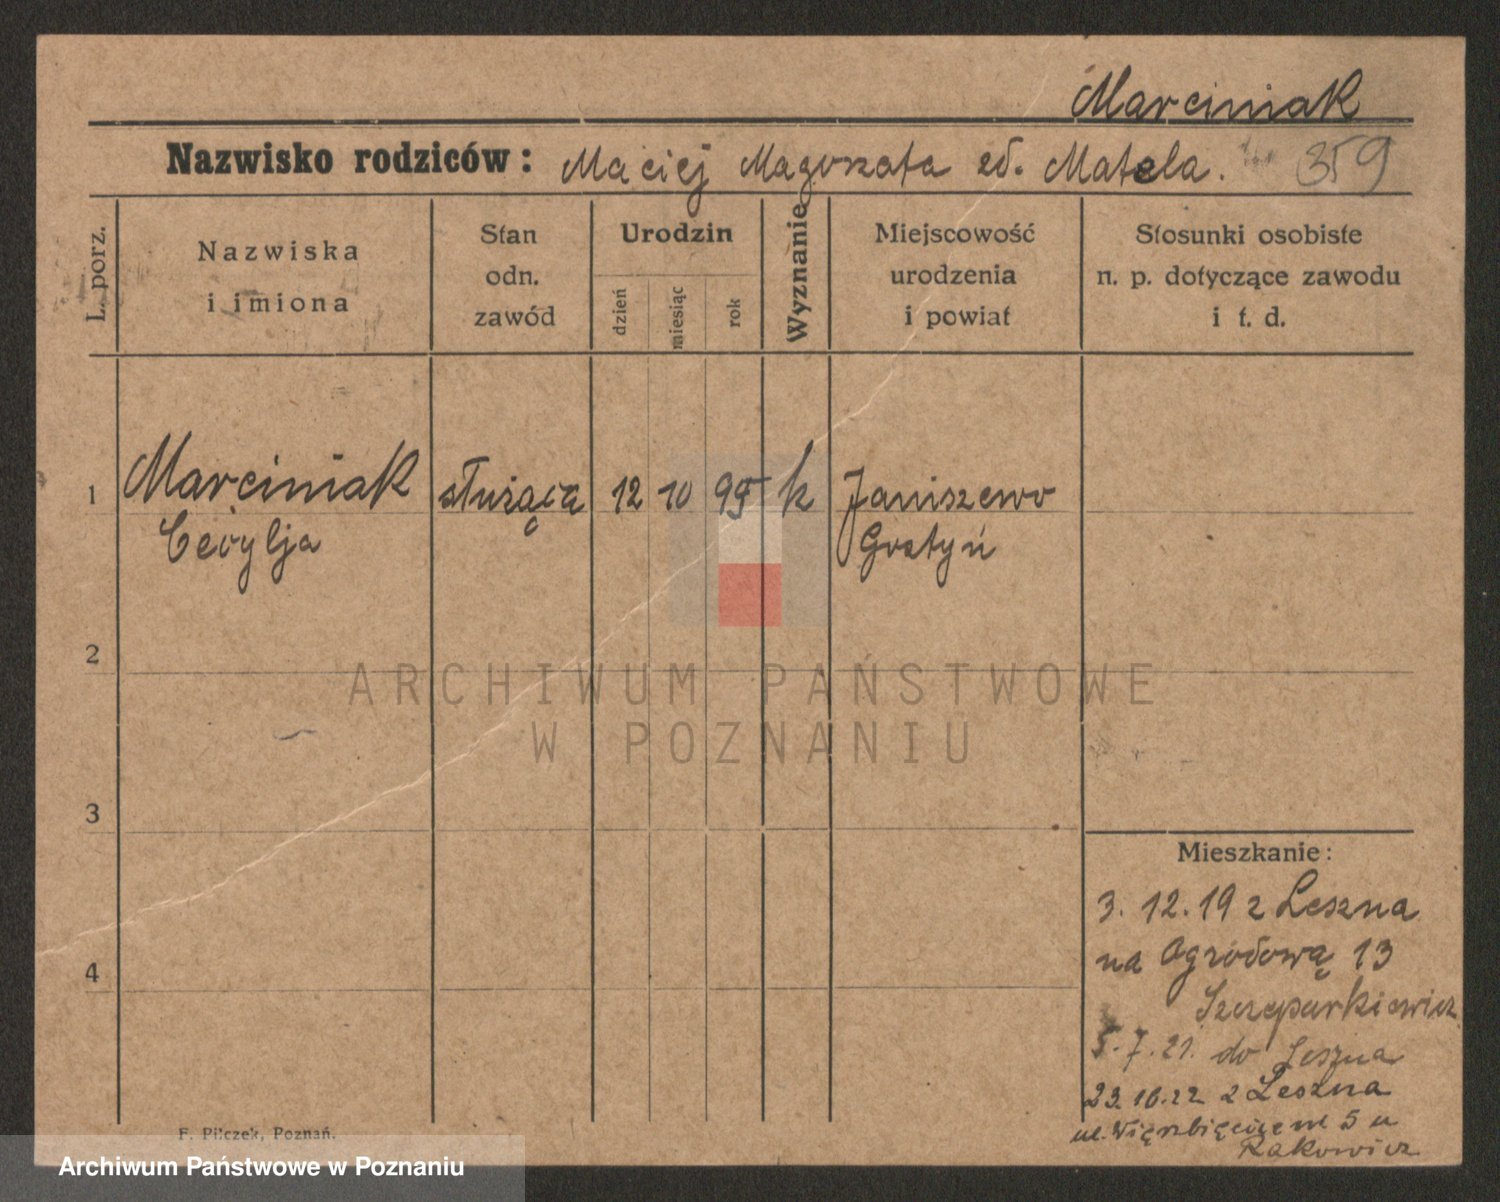 Marciniak
Nazwisko rodziców: Maciej Magorzata zd. Matela. 359
L. porz.
Nazwiska
i imiona
Stan
odn.
zawód
Urodzin
dzień
miesiąc
rok
Wyznanie
Miejscowość
urodzenia
i powiat
Stosunki osobiste
n. p. dotyczące zawodu
i t. d.
1 Marciniak służąca 12 10 95 k Janiszewo
Cecylja Gostyń
2
3
4
Mieszkanie:
3. 12. 19 z Leszna
na Ogrodową 13
5. 7. 21. do Leszna
23. 10. 22 z Leszna
ul. 5 u
Rakowicz
F. Pilczek, Poznań.
ARCHIWUM PAŃSTWOWE
W POZNANIU
Archiwum Państwowe w Poznaniu